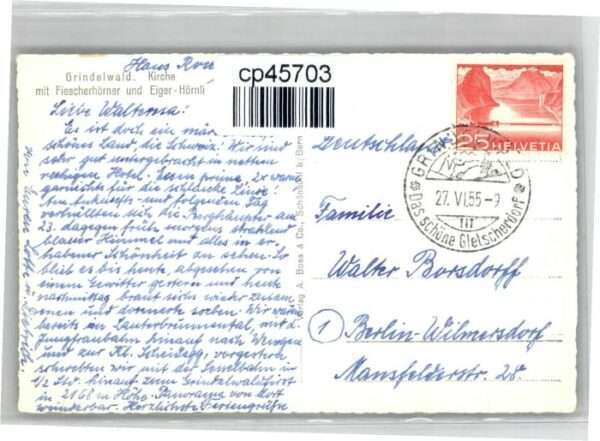 Hans Ron
Grindelwald. Kirche
mit Fiescherhörner und Eiger-Hörnli
cp45703
Liebe
Es ist doch ein mär
schönes Land, die Schweiz! Wir sind
sehr gut untergebracht in nettem
ruhigen Hotel. Essen prima, 2x warm
garnichts für die schlanke Linie!
Am Ankunfts- und folgenden Tag
verhüllten sich die Berghäupter, am
23. dagegen früh morgens strahlend
blauer Himmel und alles in er-
habener Schönheit zu sehen. So
blieb es bis heute, abgesehen von
einem Gewitter gestern und heute
nachmittag braut sichs wieder zusam
men und donnerte soeben. Wir waren
bereits im Lauterbrunnental, mit d.
Jungfraubahn hinauf nach Wengen
und zur Kl. Scheidegg, vorgestern
schwebten wir mit der Sesselbahn in
1/2 Std. hinauf zum Grindelwaldfirst
in 2168 m Höhe. Panorama von dort
wunderbar. Herzlichste Feriengrüße
Verlag A. Boss & Co., Schönbühl b/Bern
Deutschland
25 HELVETIA
GRINDELWALD
27. VI. 55 - 9
Das schöne Gletscherdorf
Familie
Walter Borsdorff
1 Berlin-Wilmersdorf
Mansfelderstr. 28.